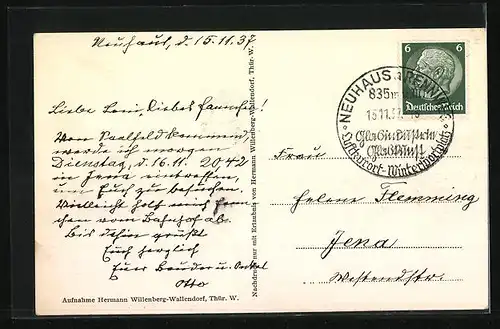 Neuhaus, d. 15.11.37
Liebe Leni, liebes Hannchen!
Von Saalfeld kommend,
werde ich morgen
Dienstag, d. 16.11. 20 42
in Jena eintreffen,
um Euch zu besuchen.
Vielleicht holt mich
chen vom Bahnhof ab.
Bis dahin grüßt
Euch herzlich
Euer Bruder u. Onkel
Otto
Aufnahme Hermann Willenberg-Wallendorf, Thür. W.
Nachdruck nur mit Erlaubnis von Hermann Willenberg-Wallendorf, Thür. W.
6 6
Deutsches Reich
NEUHAUS
835m
15.11.37
Glasindustrie
Glaskunst
Luftkurort Wintersportplatz
Frau
Helene Flemming
Jena
Westendstr.